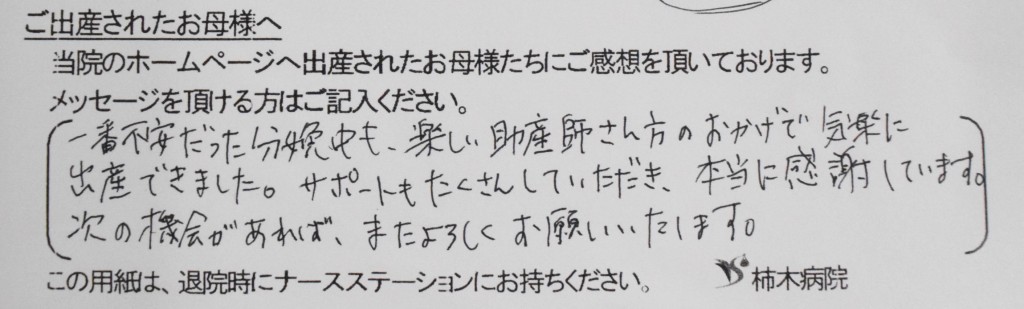 ご出産されたお母様へ
当院のホームページへ出産されたお母様たちにご感想を頂いております。
メッセージを頂ける方はご記入ください。
一番不安だった分娩中も、楽しい助産師さん方のおかげで気楽に
出産できました。サポートもたくさんしていただき、本当に感謝しています。
次の機会があれば、またよろしくお願いいたします。
この用紙は、退院時にナースステーションにお持ちください。 柿木病院